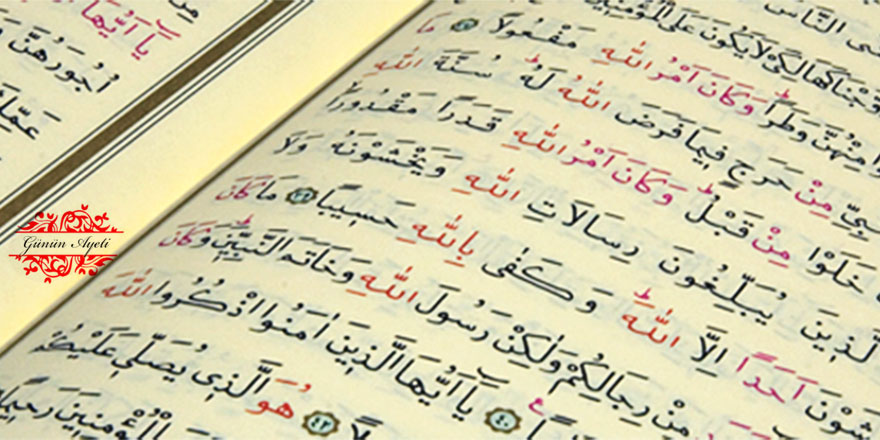 مِنْ
يَٓا اَيُّهَا
اُجُورَهُنَّ
Günün Ayeti
النَّاسَ
لِكَيْ لَا يَكُونَ عَلَى الْمُؤْمِنِينَ
مِنْهُنَّ وَطَرًا وَكَانَ اَمْرُ اللّٰهِ مَفْعُولًا ﴿٣٧﴾ مَا
مِنْ حَرَجٍ فِيمَا فَرَضَ اللّٰهُ لَهُ سُنَّةَ اللّٰهِ
خَلَوْا مِنْ قَبْلُ وَكَانَ اَمْرُ اللّٰهِ قَدَرًا مَقْدُورًا
اَلَّذِينَ يُبَلِّغُونَ رِسَالَاتِ اللّٰهِ وَيَخْشَوْنَهُ وَلَا
اَحَدًا اِلَّا اللّٰهَ وَكَفٰى بِاللّٰهِ حَسِيبًا ﴿٣٩﴾ مَا كَانَ
مِنْ رِجَالِكُمْ وَلٰكِنْ رَسُولَ اللّٰهِ وَخَاتَمَ النَّبِيِّينَ وَكَانَ
﴿٤٠﴾ يَٓا اَيُّهَا الَّذِينَ اٰمَنُوا اذْكُرُوا اللّٰهَ
﴿٤٢﴾ هُوَ الَّذِي يُصَلِّي عَلَيْكُمْ
رَحِيمًا